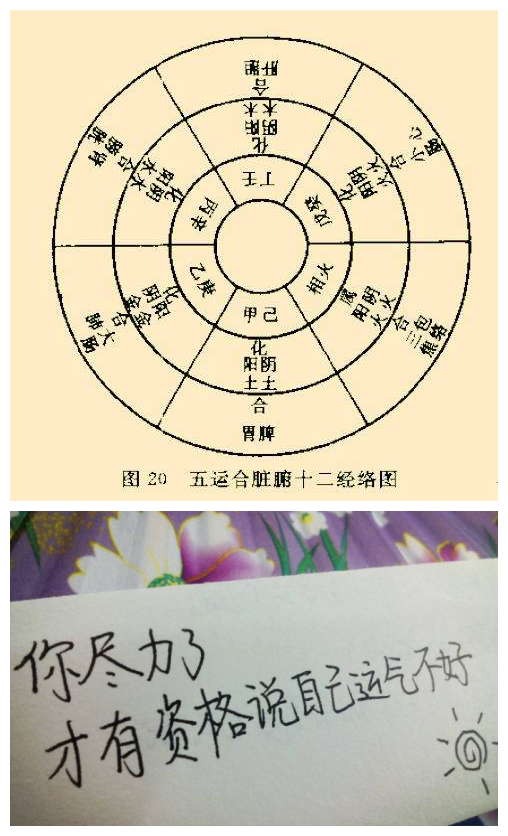 肝胆
合
木木
阴阳
化
丁壬
小心
肠
合
火火
阳阴
化
戊癸
相火
属
阳阴
火火
合
三包
焦络
甲己
化
阳阴
土土
合
胃脾
庚乙
化
阳阴
金金
合
大肺
肠
丙辛
化
阳阴
水水
合
膀肾
胱
图20 五运合脏腑十二经络图
你尽力了
才有资格说自己运气不好